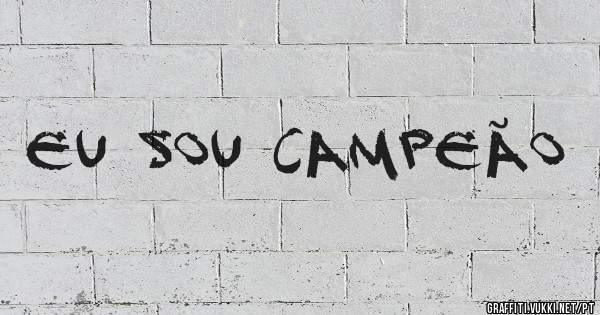 EU SOU CAMPEÃO
GRAFFITI.VUKKI.NET/PT